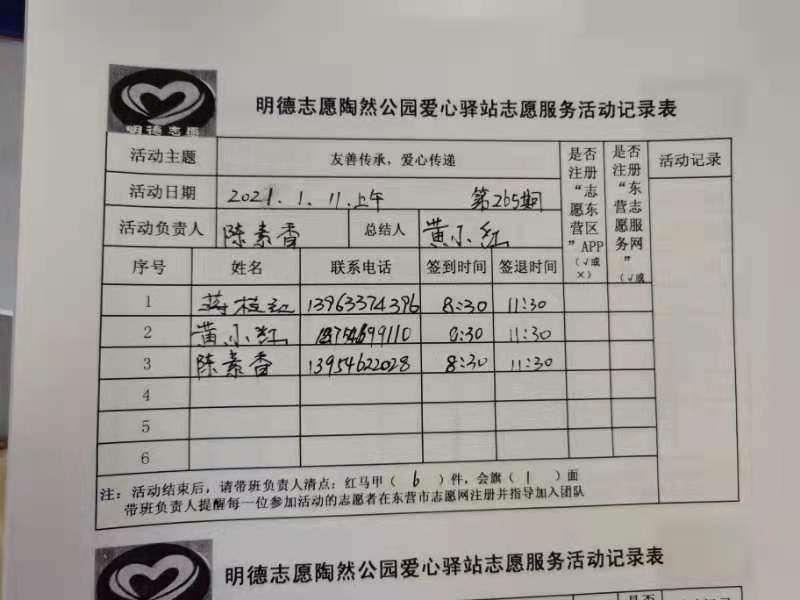 明德志愿陶然公园爱心驿站志愿服务活动记录表
明德志愿
活动主题 友善传承，爱心传递 是否注册“志愿东营区”APP（√或×） 是否注册“东营志愿服务网”（√或 活动记录
活动日期 2021.1.11.上午 第265期
活动负责人 陈素香 总结人 黄小红
序号 姓名 联系电话 签到时间 签退时间
1 蒋枝红 13963374396 8:30 11:30
2 黄小红 8:30 11:30
3 陈素香 13954622028 8:30 11:30
4
5
6
注：活动结束后，请带班负责人清点：红马甲（ 6 ）件，会旗（ 1 ）面
带班负责人提醒每一位参加活动的志愿者在东营市志愿网注册并指导加入团队
明德志愿陶然公园爱心驿站志愿服务活动记录表